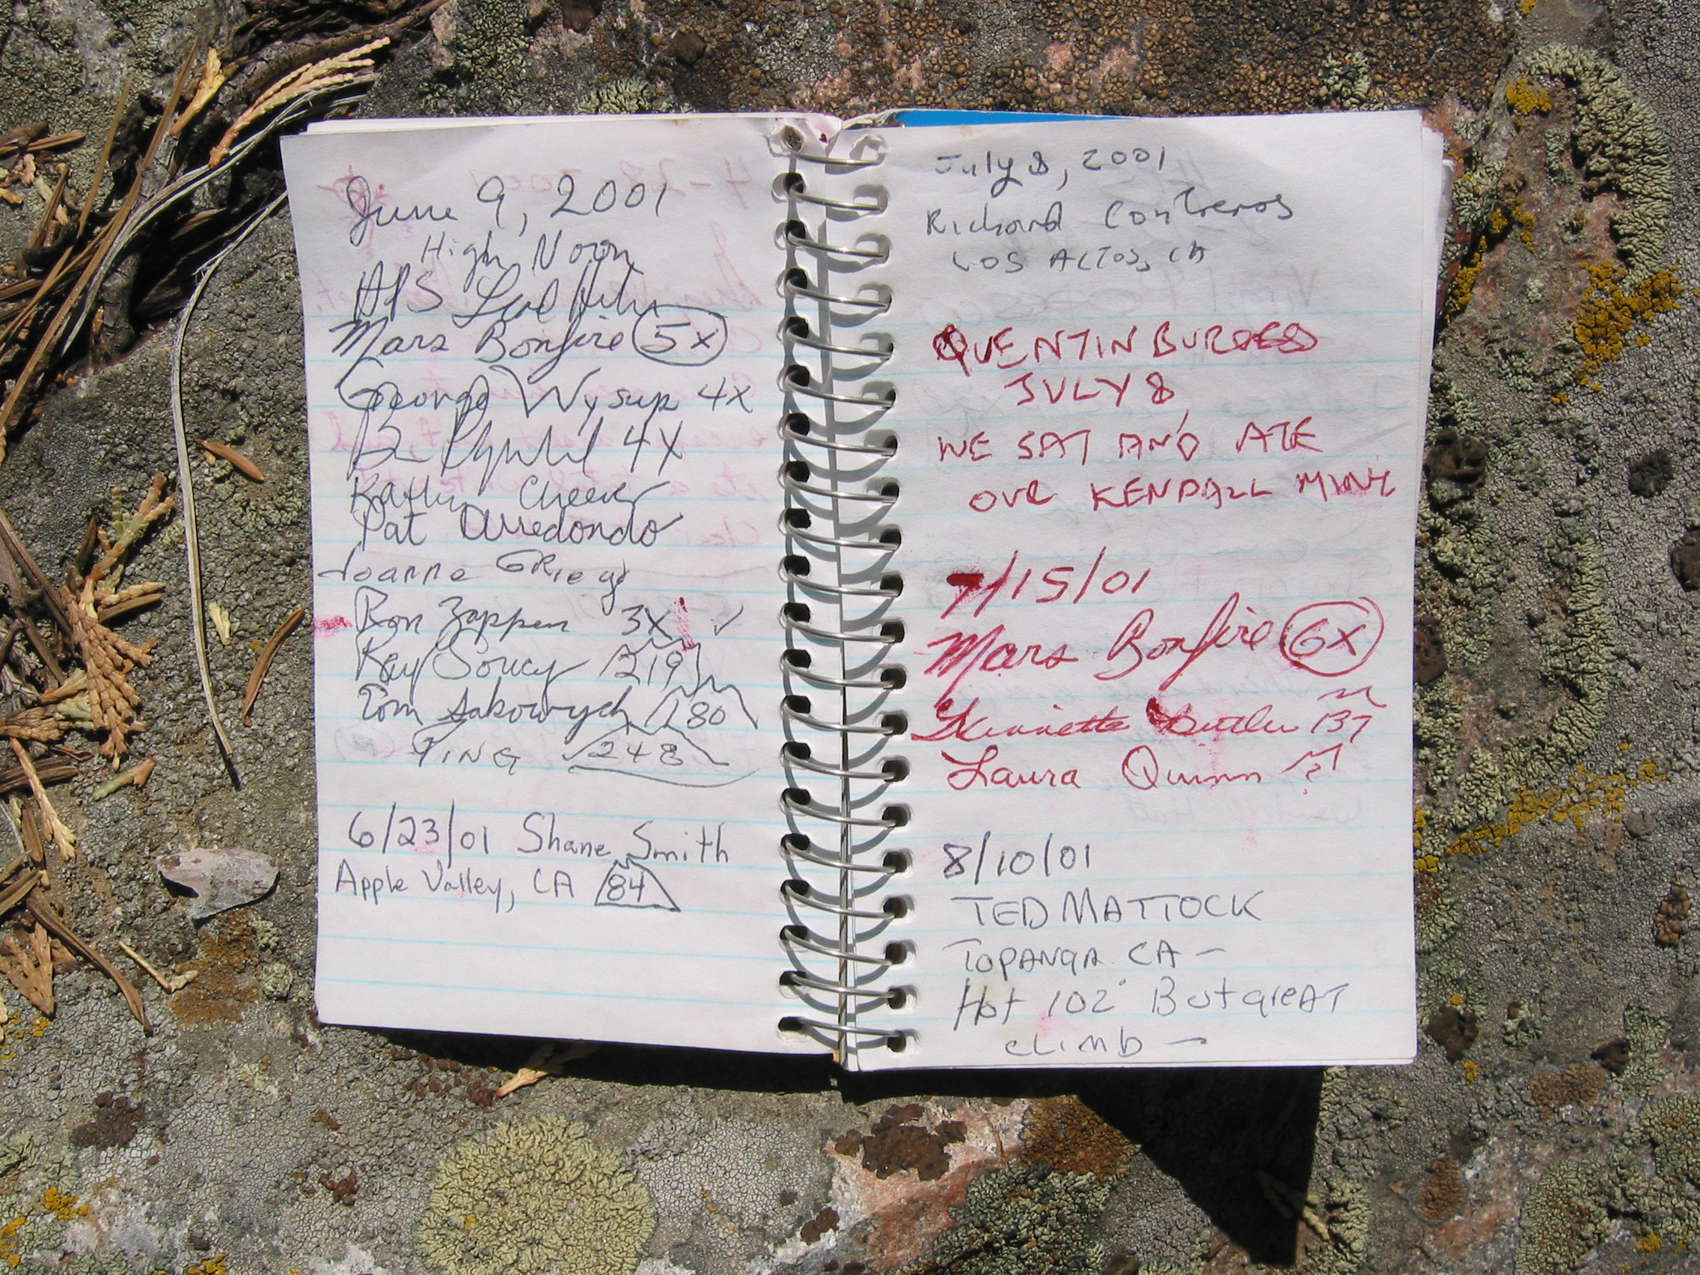 June 9, 2001
High Noon
HPS
Mars Bonfire 5x
George Wysup 4x
4x
Kathy Cheever
Pat Arredondo
Joanne Griego
Ron Zappen 3X ✓
Kay Soucy 219
Tom Sakowych 180
TING 248
6/23/01 Shane Smith
Apple Valley, CA 84
July 8, 2001
Richard Contreras
LOS ALTOS, CA
QUENTIN BURGESS
JULY 8,
WE SAT AND ATE
OUR KENDALL MINT
7/15/01
Mars Bonfire 6x
137
Laura Quinn
8/10/01
TED MATTOCK
TOPANGA CA –
Hot 102° But greAT
climb –